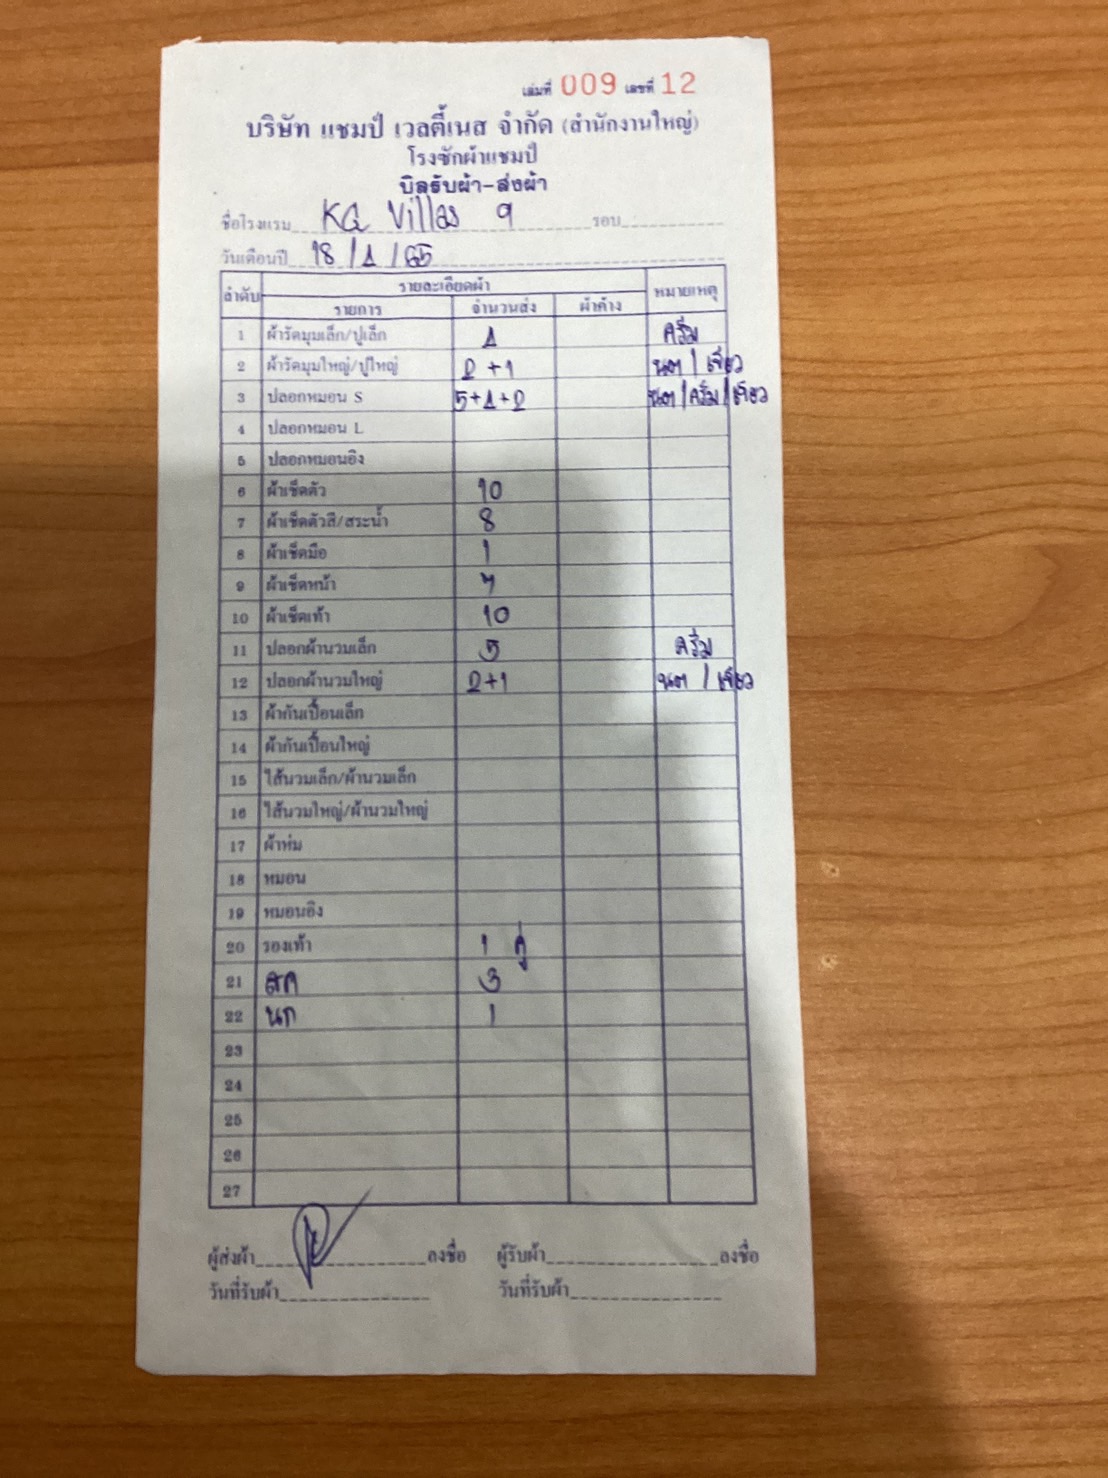 เล่มที่ 009 เลขที่ 12
บริษัท แชมป์ เวลตี้เนส จำกัด (สำนักงานใหญ่)
โรงซักผ้าแชมป์
บิลรับผ้า-ส่งผ้า
ชื่อโรงแรม KQ Villas 9 รอบ
วันเดือนปี 18/1/65
ลำดับ รายละเอียดผ้า หมายเหตุ
รายการ จำนวนส่ง ผ้าค้าง
1 ผ้ารัดมุมเล็ก/ปูเล็ก 1 ครีม
2 ผ้ารัดมุมใหญ่/ปูใหญ่ 2+1 / เขียว
3 ปลอกหมอน S 5+1+2 /ครีม/เขียว
4 ปลอกหมอน L
5 ปลอกหมอนอิง
6 ผ้าเช็ดตัว 10
7 ผ้าเช็ดตัวสี/สระน้ำ 8
8 ผ้าเช็ดมือ 1
9 ผ้าเช็ดหน้า 7
10 ผ้าเช็ดเท้า 10
11 ปลอกผ้านวมเล็ก 5 ครีม
12 ปลอกผ้านวมใหญ่ 2+1 / เขียว
13 ผ้ากันเปื้อนเล็ก
14 ผ้ากันเปื้อนใหญ่
15 ไส้นวมเล็ก/ผ้านวมเล็ก
16 ไส้นวมใหญ่/ผ้านวมใหญ่
17 ผ้าห่ม
18 หมอน
19 หมอนอิง
20 รองเท้า 1 คู่
21 สค 3
22 นก 1
23
24
25
26
27
ผู้ส่งผ้า ลงชื่อ ผู้รับผ้า ลงชื่อ
วันที่รับผ้า วันที่รับผ้า